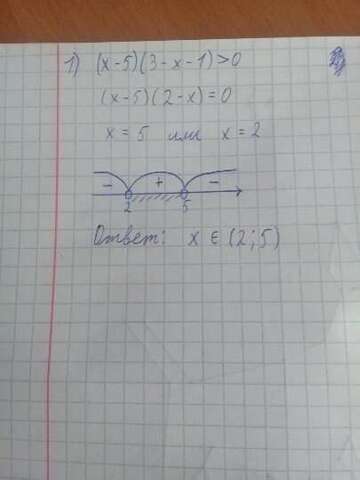 1) (x-5)(3-x-1)>0
(x-5)(2-x)=0
x=5 или x=2
- + -
2 5
Ответ: x ∈ (2;5)